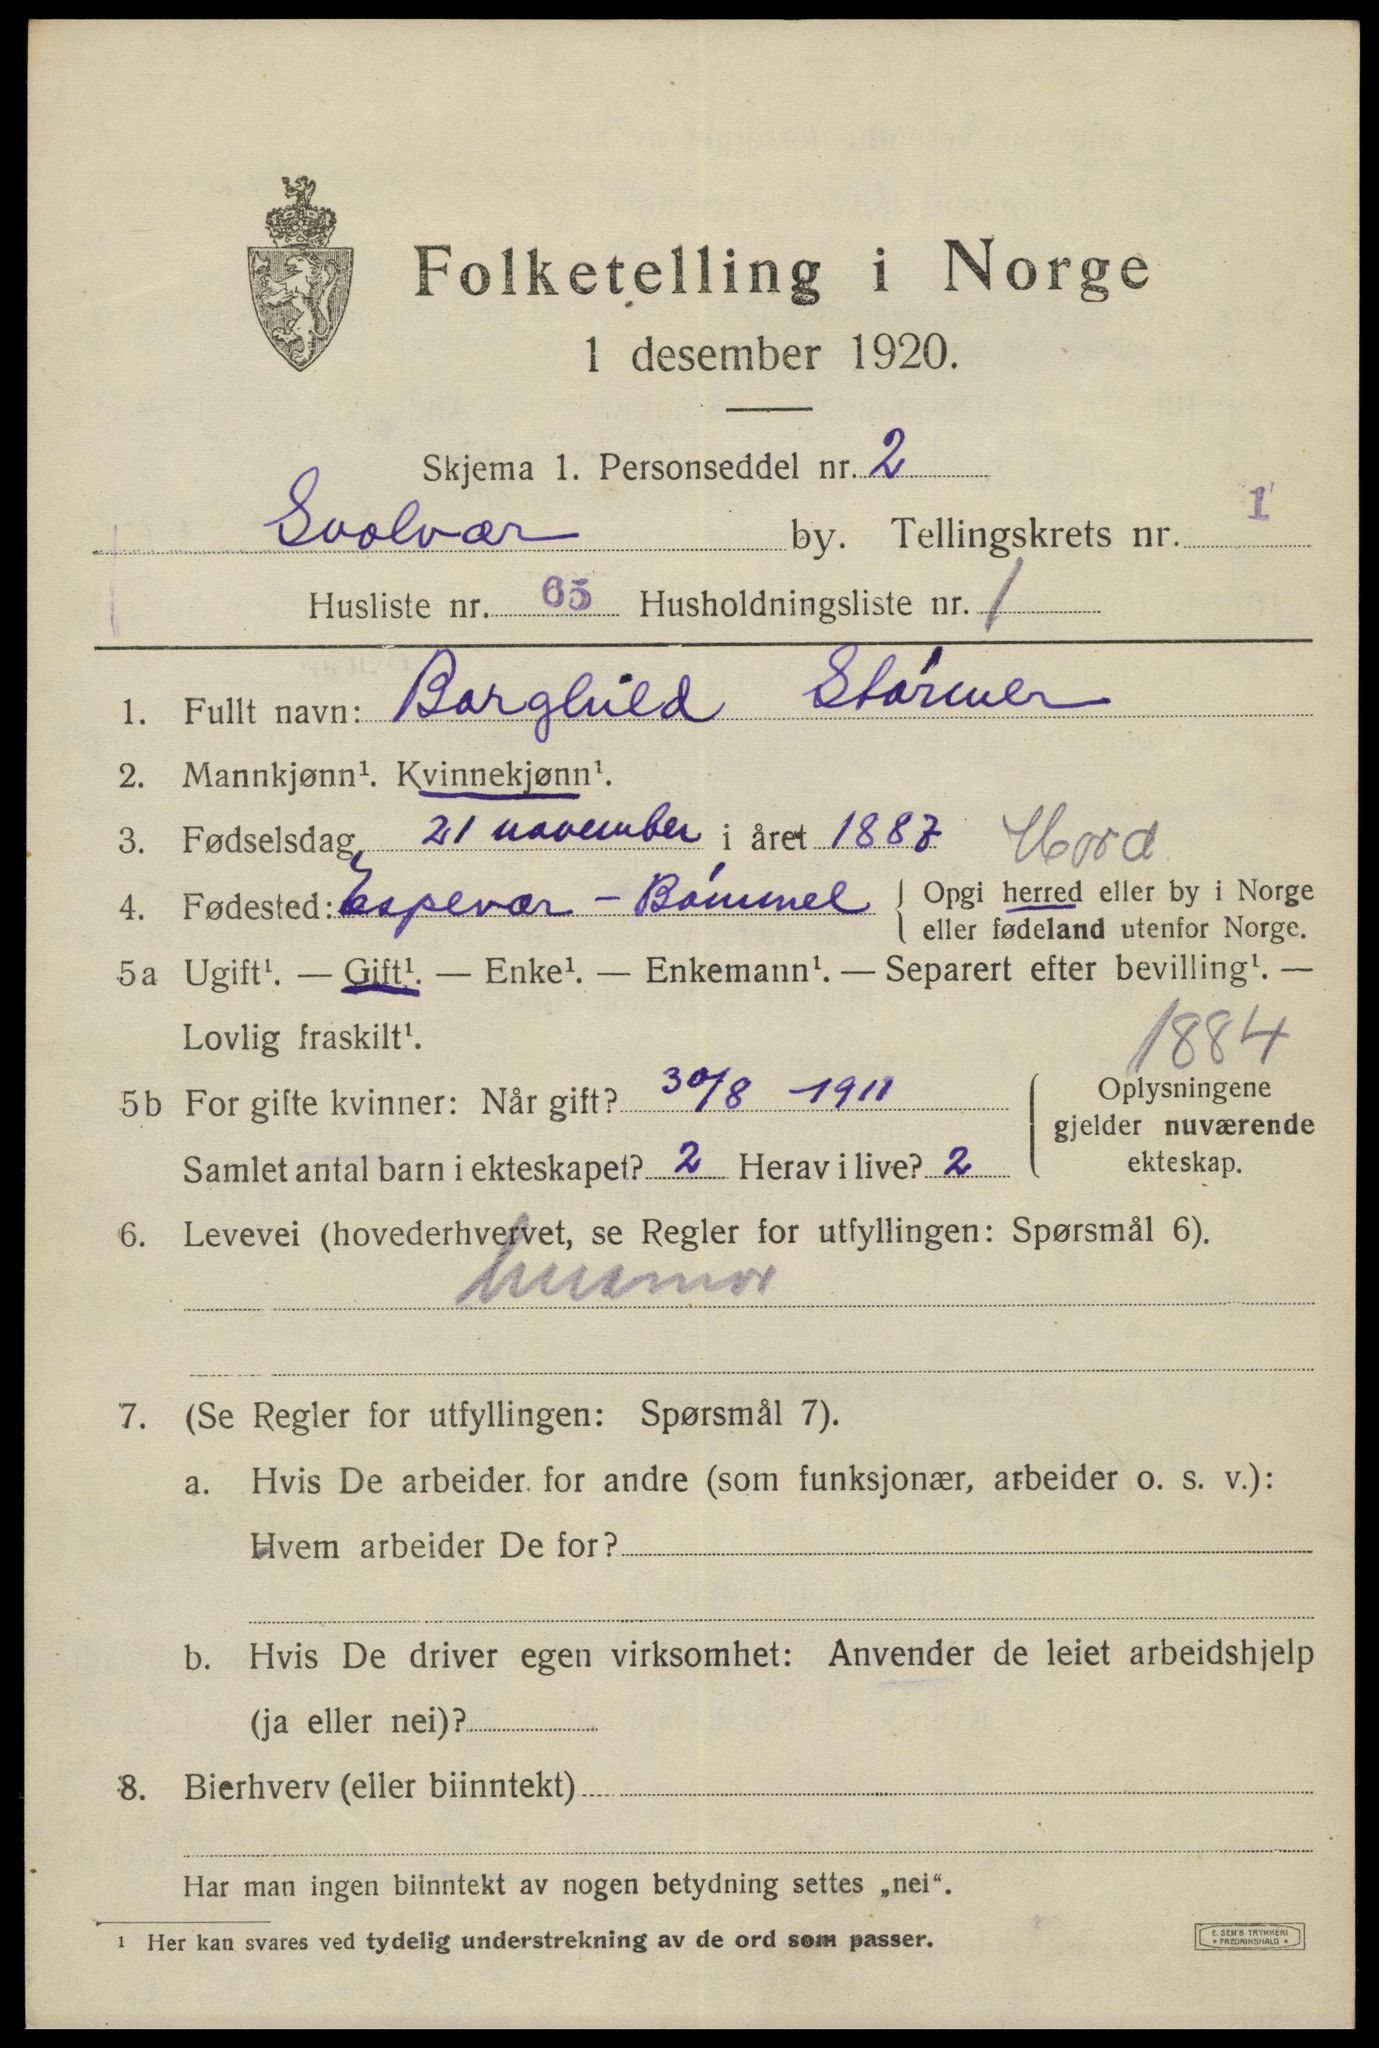 Folketelling i Norge
1 desember 1920.
Skjema 1. Personseddel nr. 2
Svolvær by. Tellingskrets nr. 1
Husliste nr. 65 Husholdningsliste nr. 1
1. Fullt navn: Borghild Størmer
2. Mannkjønn¹. Kvinnekjønn¹.
3. Fødselsdag 21 november i året 1887 Hord
4. Fødested: Espevær - Bømmel { Opgi herred eller by i Norge
eller fødeland utenfor Norge.
5a Ugift¹. — Gift¹. — Enke¹. — Enkemann¹. — Separert efter bevilling¹. —
Lovlig fraskilt¹.
1884
5b For gifte kvinner: Når gift? 30/8 - 1911
Samlet antal barn i ekteskapet? 2 Herav i live? 2
{ Oplysningene
gjelder nuværende
ekteskap.
6. Levevei (hovederhvervet, se Regler for utfyllingen: Spørsmål 6).
husmor
7. (Se Regler for utfyllingen: Spørsmål 7).
a. Hvis De arbeider for andre (som funksjonær, arbeider o. s. v.):
Hvem arbeider De for?
b. Hvis De driver egen virksomhet: Anvender de leiet arbeidshjelp
(ja eller nei)?
8. Bierhverv (eller biinntekt)
Har man ingen biinntekt av nogen betydning settes „nei“.
¹ Her kan svares ved tydelig understrekning av de ord som passer.
E. SEM'S TRYKKERI
• FREDRIKSHALD •